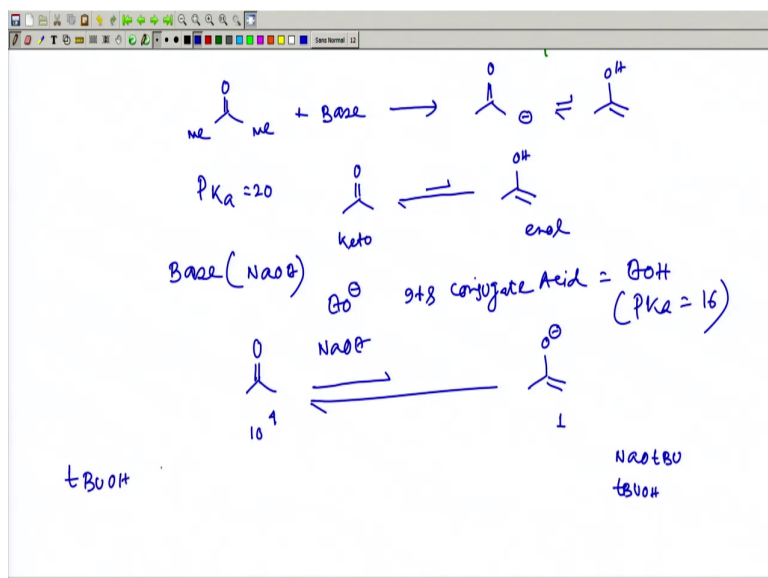 Sans Normal 12
O O OH
Me Me + Base → ⊖ ⇌
PKa = 20 O OH
Keto enol
Base (NaOEt) EtO⊖ Its conjugate Acid = EtOH
(PKa = 16)
O NaOEt O⊖
10⁴ 1
NaOtBu
tBuOH tBuOH